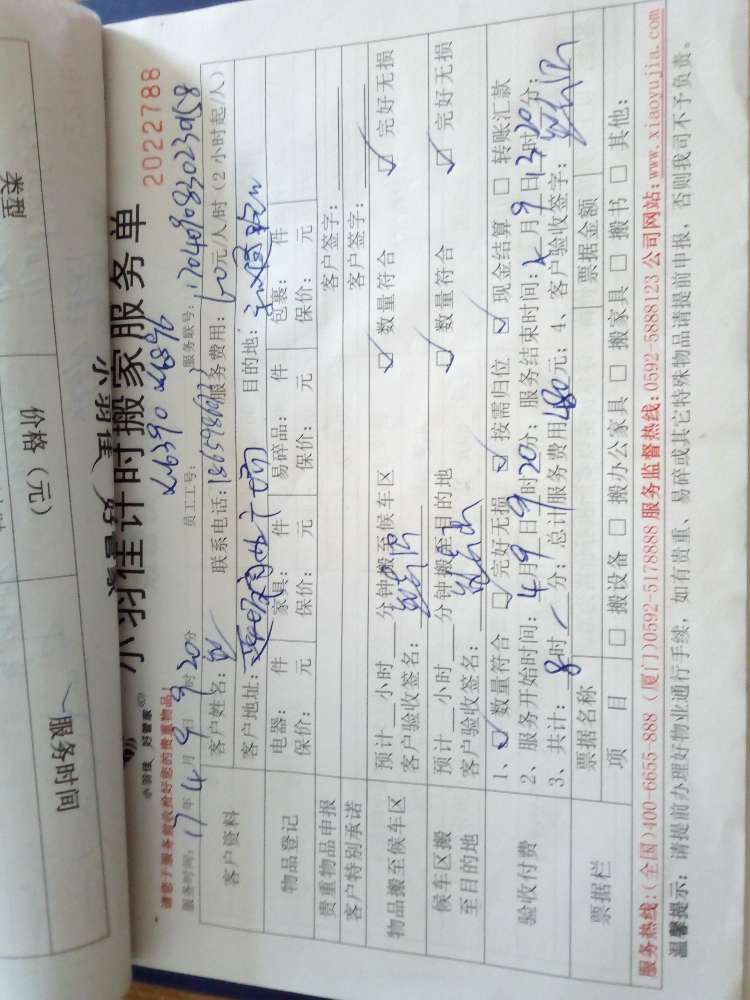 类型
价格（元）
服务时间
小羽佳 好管家
小羽佳计时搬家服务单
2022788
请您于服务前收拾好您的贵重物品！
服务时间：17年4月9日9时20分 员工工号：26390 26896 服务账号：
客户资料
客户姓名： 联系电话： 服务费用：60元/人/时（2小时起/人）
客户地址： 目的地：
物品登记
电器： 件 家具： 件 易碎品： 件 包裹： 件
保价： 元 保价： 元 保价： 元 保价： 元
贵重物品申报 客户签字：
客户特别承诺 客户签字：
物品搬至候车区
预计__小时__分钟搬至候车区 ☑ 数量符合 ☑ 完好无损
客户验收签名：
候车区搬至目的地
预计__小时__分钟搬至目的地 ☐ 数量符合 ☑ 完好无损
客户验收签名：
验收付费
1、☑ 数量符合 ☑ 完好无损 ☑ 按需归位 ☑ 现金结算 ☐ 转账汇款
2、服务开始时间：4月9日9时20分；服务结束时间：4月9日13时20分；
3、共计：8时/分；总计服务费用480元；4、客户验收签字：
票据栏
票据名称 票据金额
项目 ☐ 搬设备 ☐ 搬办公家具 ☐ 搬家具 ☐ 搬书 ☐ 其他：
服务热线：(全国)400-6655-888 (厦门)0592-5178888 服务监督热线：0592-5888123 公司网站：www.xiaoyujia.com
温馨提示：请提前办理好物业通行手续，如有贵重、易碎或其它特殊物品请提前申报，否则我司不予负责。